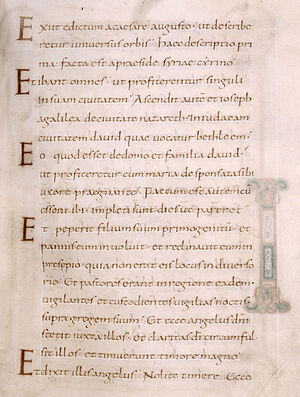 Exiit edictum a caesare augusto · ut describe
retur universus orbis · haec descriptio pri
ma facta est a praeside syriae cyrino
Et ibant omnes · ut profiterentur singuli
in suam civitatem · Ascendit autē et ioseph
a galilea de civitate nazareth · In iudaeam
civitatem david quae vocatur bethleem ·
Eo quod esset de domo et familia david ·
ut profiteretur cum maria desponsata sibi
uxore praegnante · Factum est autem cū
essent ibi · impleti sunt dies ut pareret
Et peperit filium suum primogenitū · et
pannis eum involuit · et reclinavit eum in
presepio · quia non erat eis locus in diverso
rio · Et pastores erant in regione eadem
vigilantes et custodientes vigilias noctis
supra gregem suum · Et ecce angelus dn̄i
stetit iuxta illos · et claritas dī circumful
sit illos · et timuerunt timore magno
Et dixit illis angelus · Nolite timere · Ecce